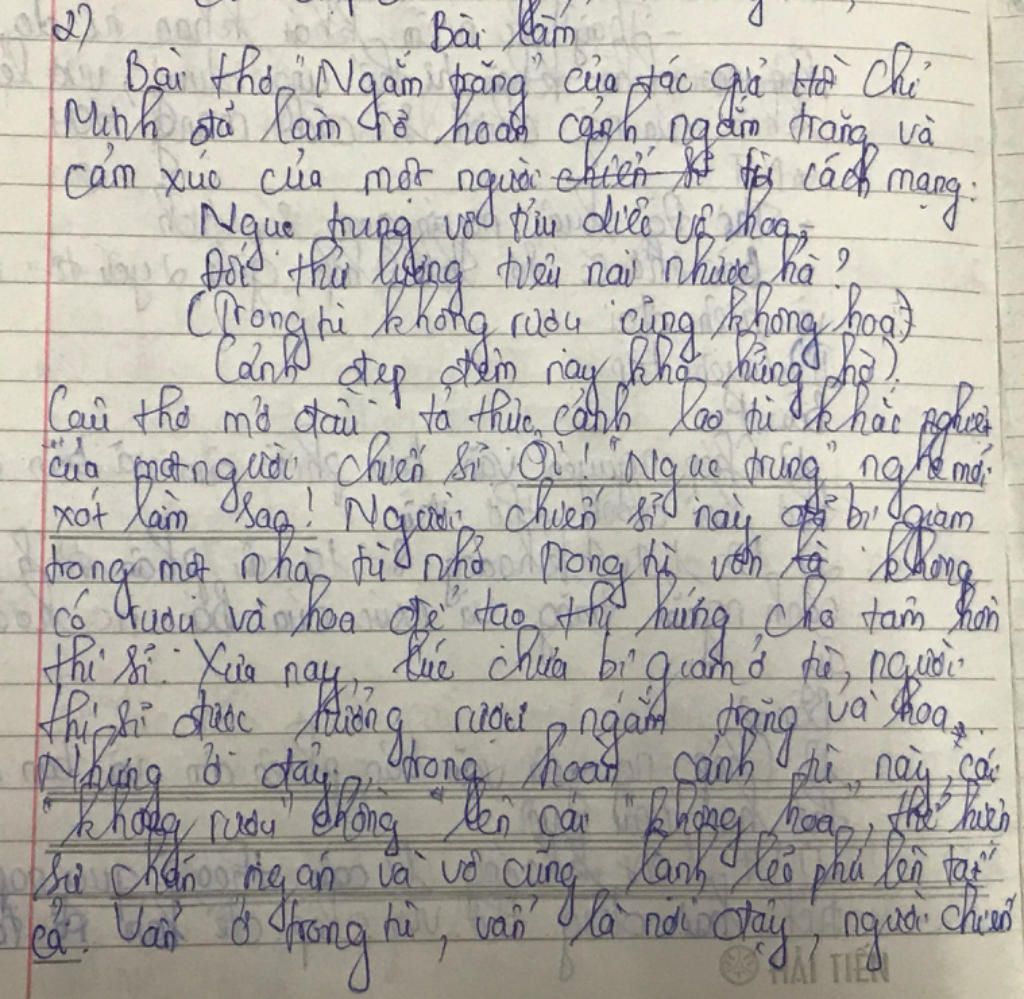 2)
Bài làm
Bài thơ "Ngắm trăng" của tác giả Hồ Chí
Minh đã làm rõ hoàn cảnh ngắm trăng và
cảm xúc của một người chiến sĩ tù cách mạng:
Ngục trung vô tửu diệc vô hoa,
Đối thử lương tiêu nại nhược hà?
(Trong tù không rượu cũng không hoa,
Cảnh đẹp đêm nay khó hững hờ).
Câu thơ mở đầu tả thực cảnh lao tù khắc nghiệt
của một người chiến sĩ. Ôi! "Ngục trung" nghe mới
xót làm sao! Người chiến sĩ này đã bị giam
trong một nhà tù nhỏ. Trong tù vốn không
có rượu và hoa để tạo thi hứng cho tâm hồn
thi sĩ. Xưa nay, lúc chưa bị giam ở tù, người
thi sĩ được thưởng rượu, ngắm trăng và hoa.
Nhưng ở đây, trong hoàn cảnh tù này, cái
"không rượu" chồng lên cái "không hoa", thể hiện
sự chán ngán và vô cùng lạnh lẽo phủ lên tất
cả. Vẫn ở trong tù, vẫn là nơi đây, người chiến
HẢI TIẾN